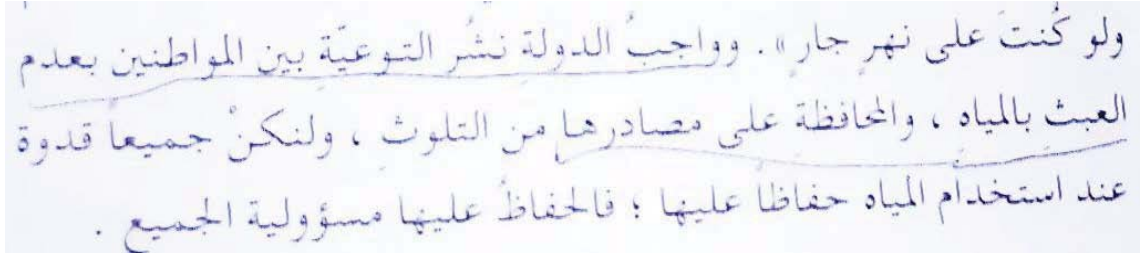 ولو كُنتَ على نهرٍ جار». وواجبُ الدولة نشْرُ التوعيّة بين المواطنين بعدم
العبث بالمياه ، والمحافظة على مصادرها من التلوث ، ولنكنْ جميعاً قدوة
عند استخدام المياه حفاظاً عليها ؛ فالحفاظُ عليها مسؤولية الجميع .